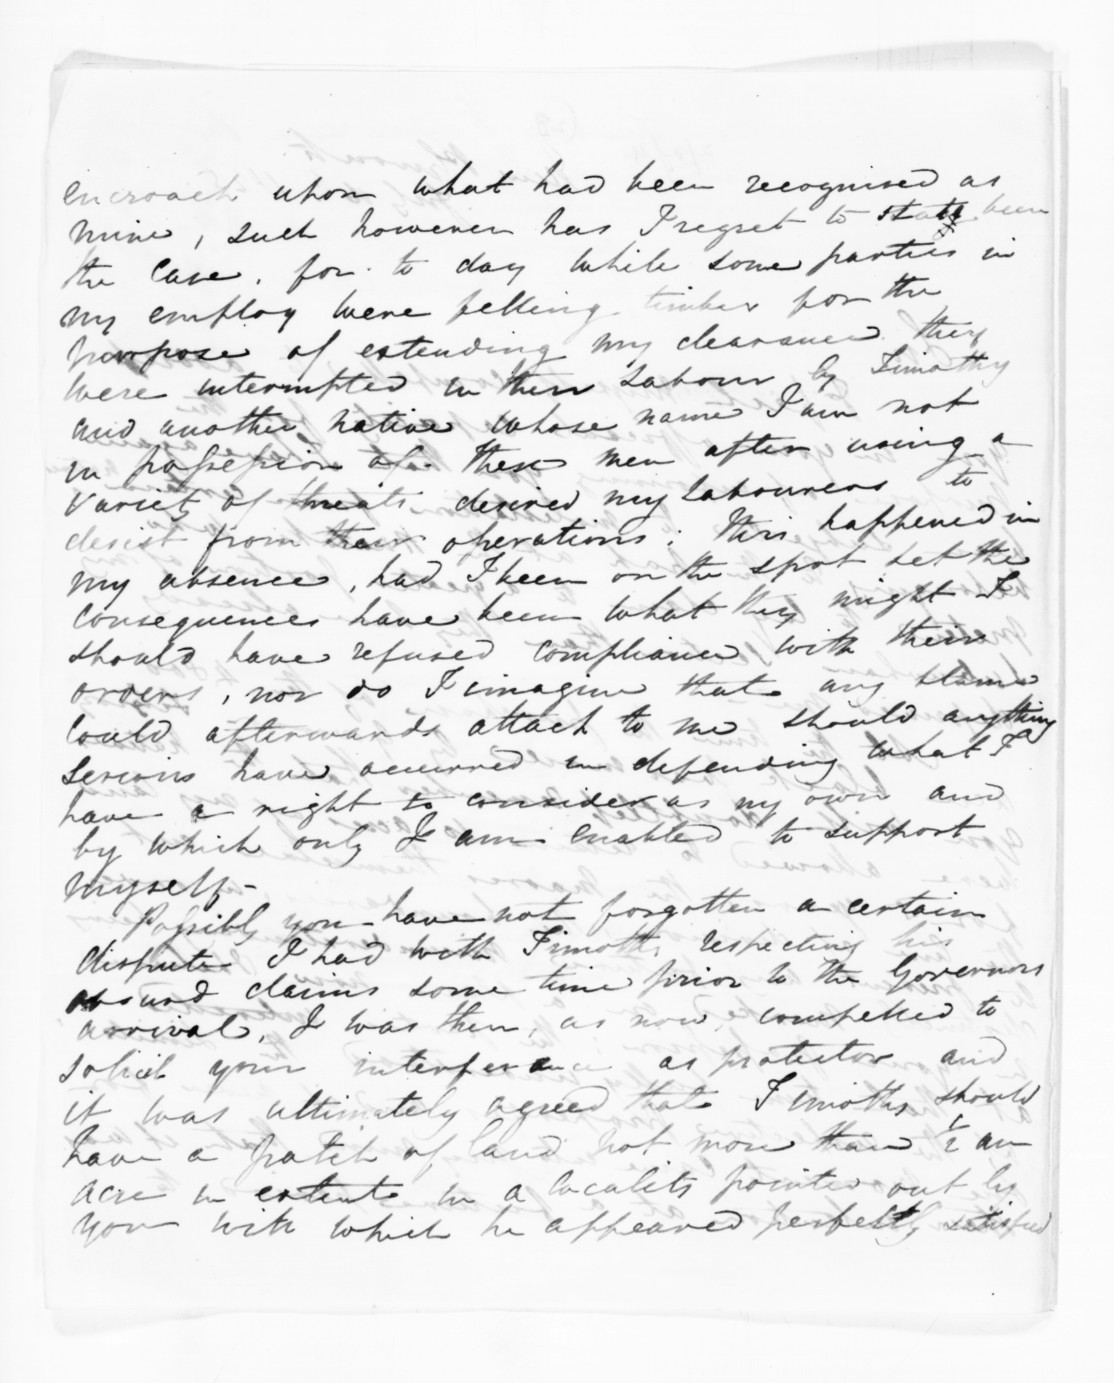 encroach upon what had been recognised as
mine, such however has I regret to state been
the case, for to day while some parties in
my employ were felling timber for the
purpose of extending my clearance they
were interrupted in their labour by Timothy
and another native whose name I am not
in possession of. These men after using a
variety of threats desired my labourers to
desist from their operations; this happened in
my absence, had I been on the spot let the
consequences have been what they might I
should have refused compliance with their
orders, nor do I imagine that any blame
could afterwards attach to me should anything
serious have occurred in defending what I
have a right to consider as my own and
by which only I am enabled to support
myself-
Possibly you have not forgotten a certain
dispute I had with Timothy respecting his
absurd claims some time prior to the Governors
arrival, I was then, as now, compelled to
solicit your interferance as protector and
it was ultimately agreed that Timothy should
have a patch of land not more than 1/2 an
acre in extent in a locality pointed out by
you with which he appeared perfectly satisfied